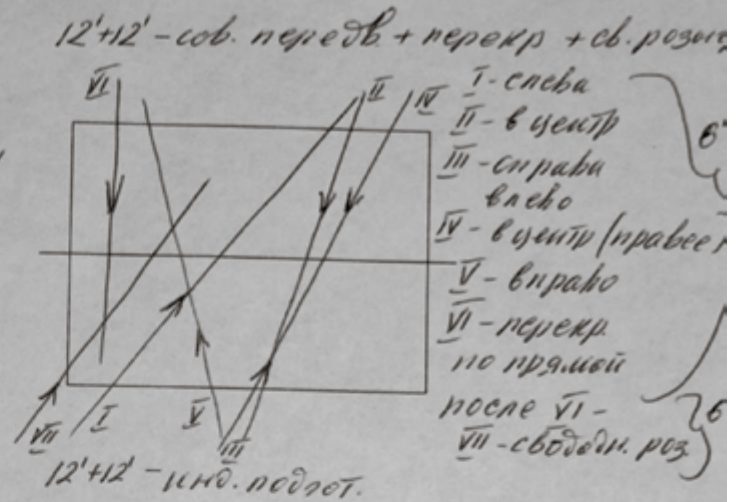 12'+12' - сов. передв. + перекр + св. розыг
VI
II
IV
I - слева
II - в центр
6'
III - справа
влево
IV - в центр (правее)
V - вправо
VI - перекр.
по прямой
после VI -
6
VII - свободн. роз.
VII
I
V
III
12'+12' - инд. подгот.